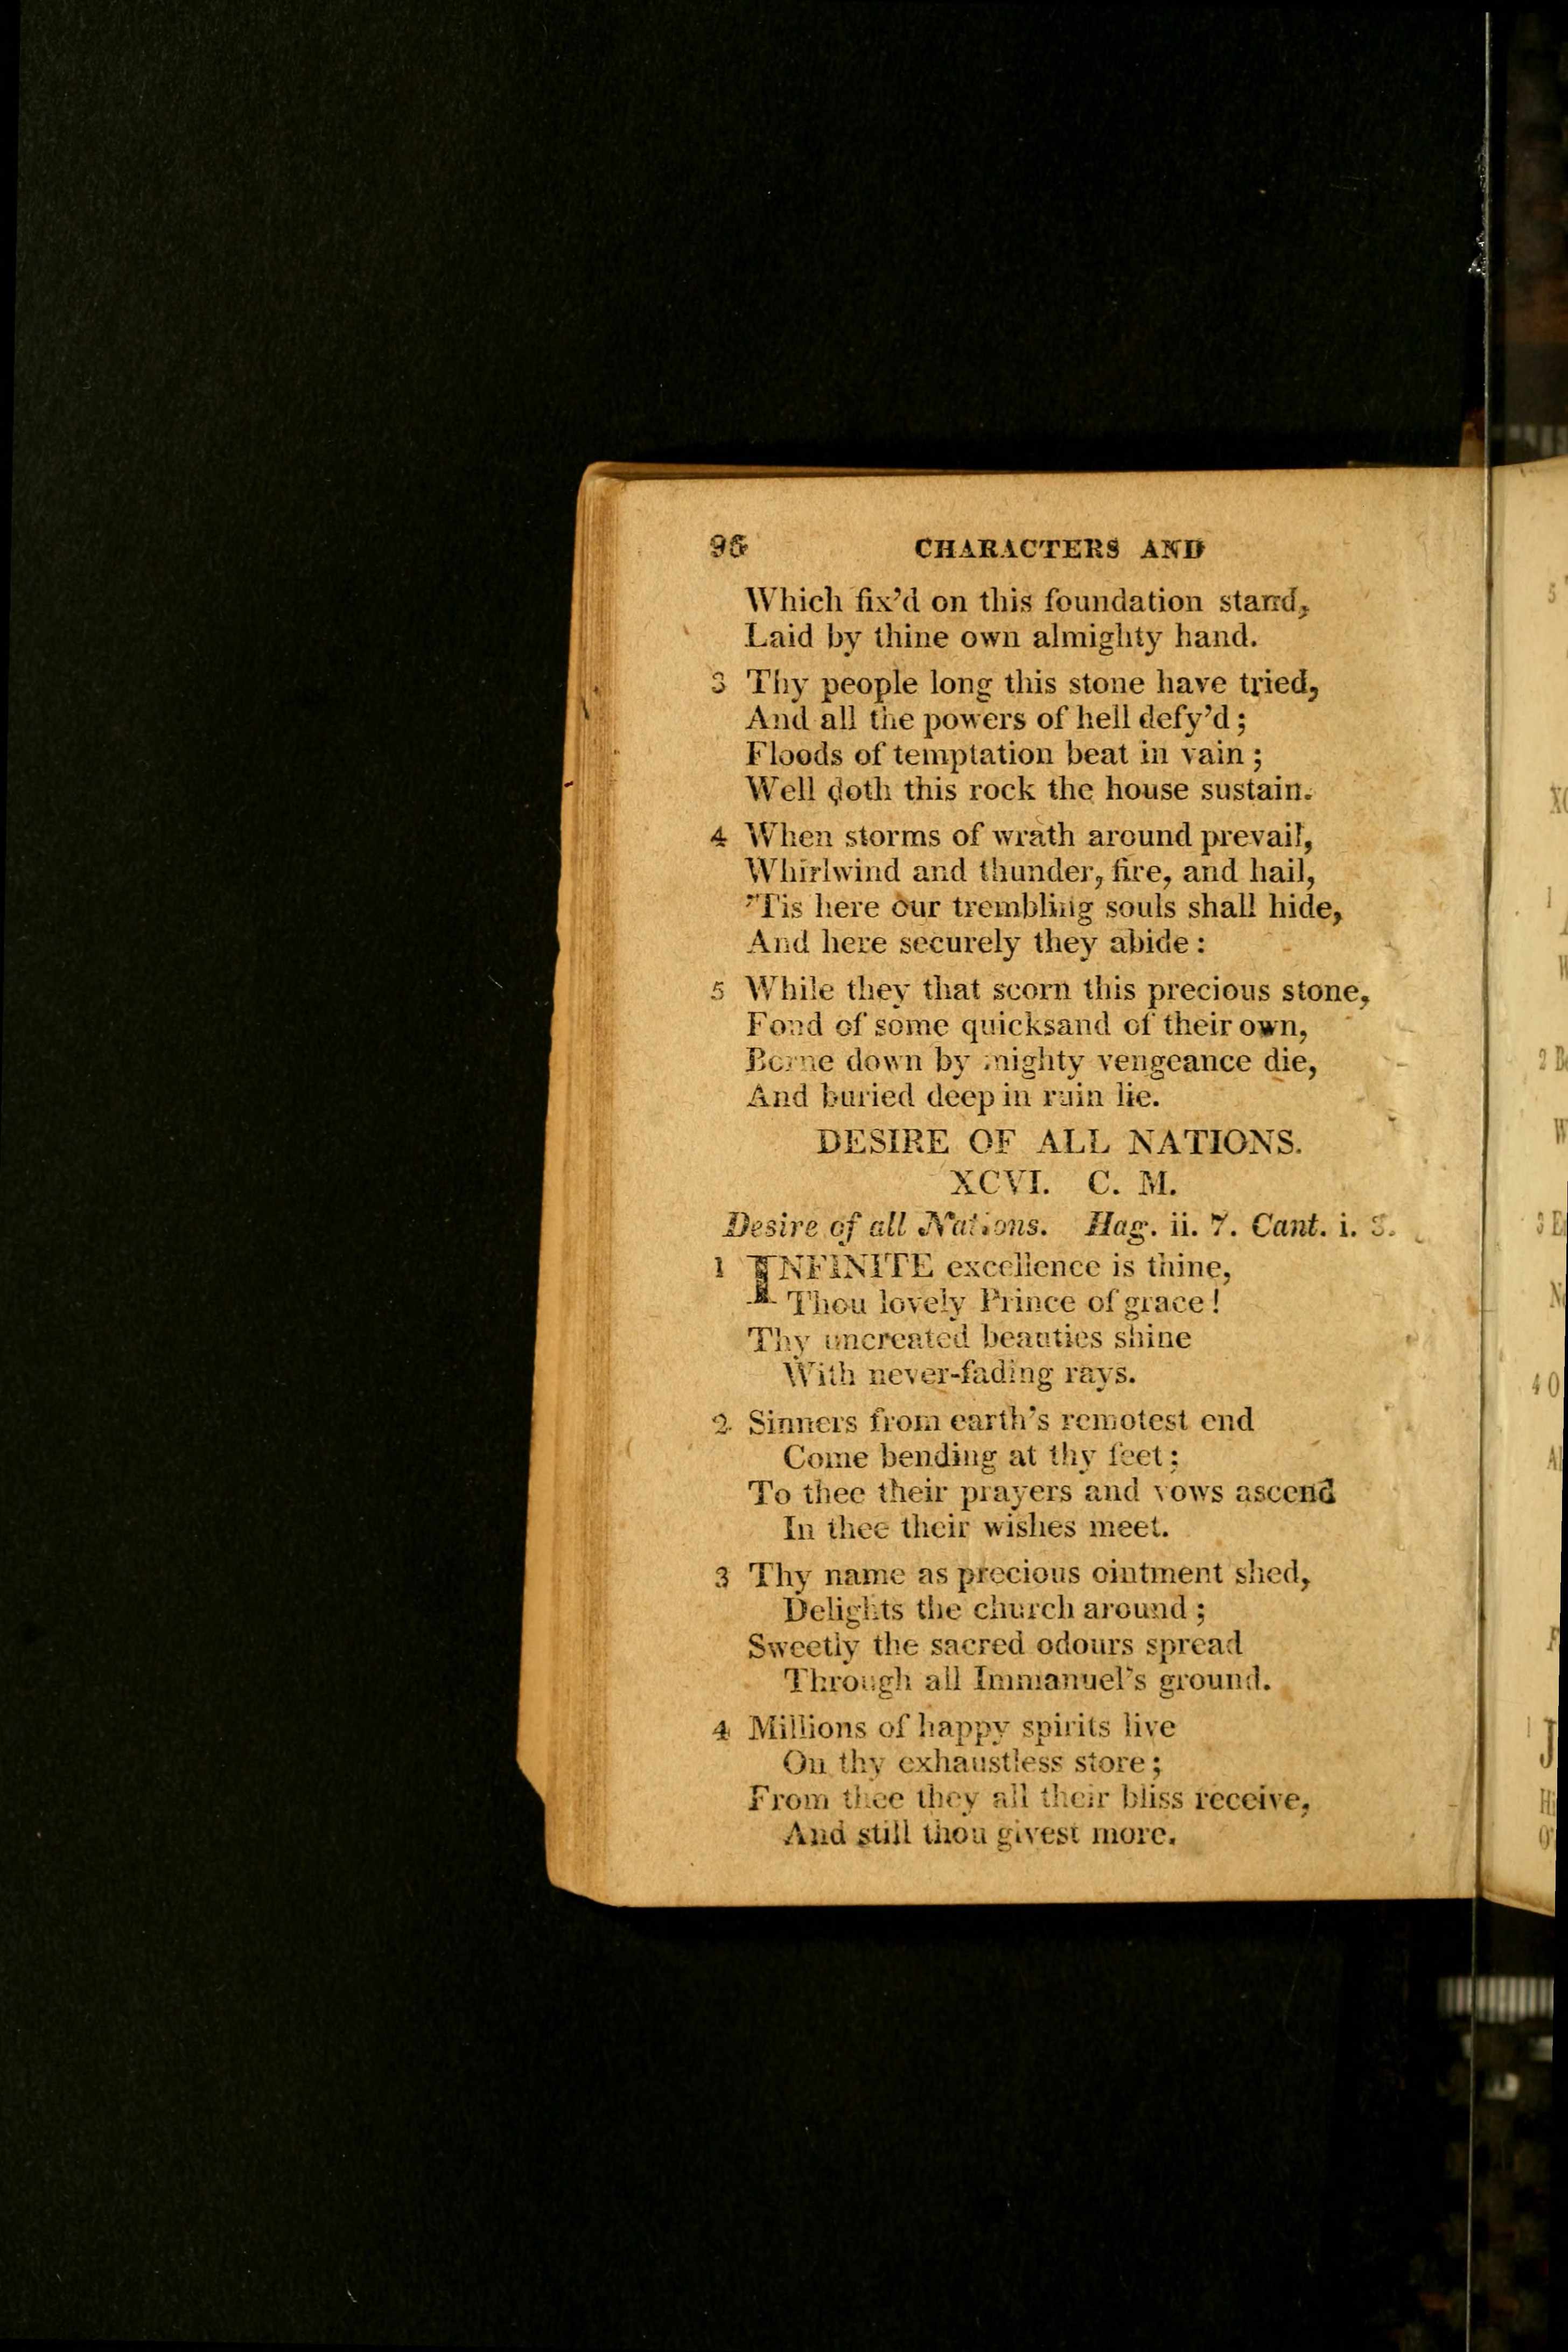 96 CHARACTERS AND
Which fix'd on this foundation stand,
Laid by thine own almighty hand.
3 Thy people long this stone have tried,
And all the powers of hell defy'd;
Floods of temptation beat in vain;
Well doth this rock the house sustain.
4 When storms of wrath around prevail,
Whirlwind and thunder, fire, and hail,
'Tis here our trembling souls shall hide,
And here securely they abide:
5 While they that scorn this precious stone,
Fond of some quicksand of their own,
Borne down by mighty vengeance die,
And buried deep in ruin lie.
DESIRE OF ALL NATIONS.
XCVI. C. M.
Desire of all Nations. Hag. ii. 7. Cant. i. 3.
1 INFINITE excellence is thine,
Thou lovely Prince of grace!
Thy uncreated beauties shine
With never-fading rays.
2 Sinners from earth's remotest end
Come bending at thy feet;
To thee their prayers and vows ascend
In thee their wishes meet.
3 Thy name as precious ointment shed,
Delights the church around;
Sweetly the sacred odours spread
Through all Immanuel's ground.
4 Millions of happy spirits live
On thy exhaustless store;
From thee they all their bliss receive,
And still thou givest more.